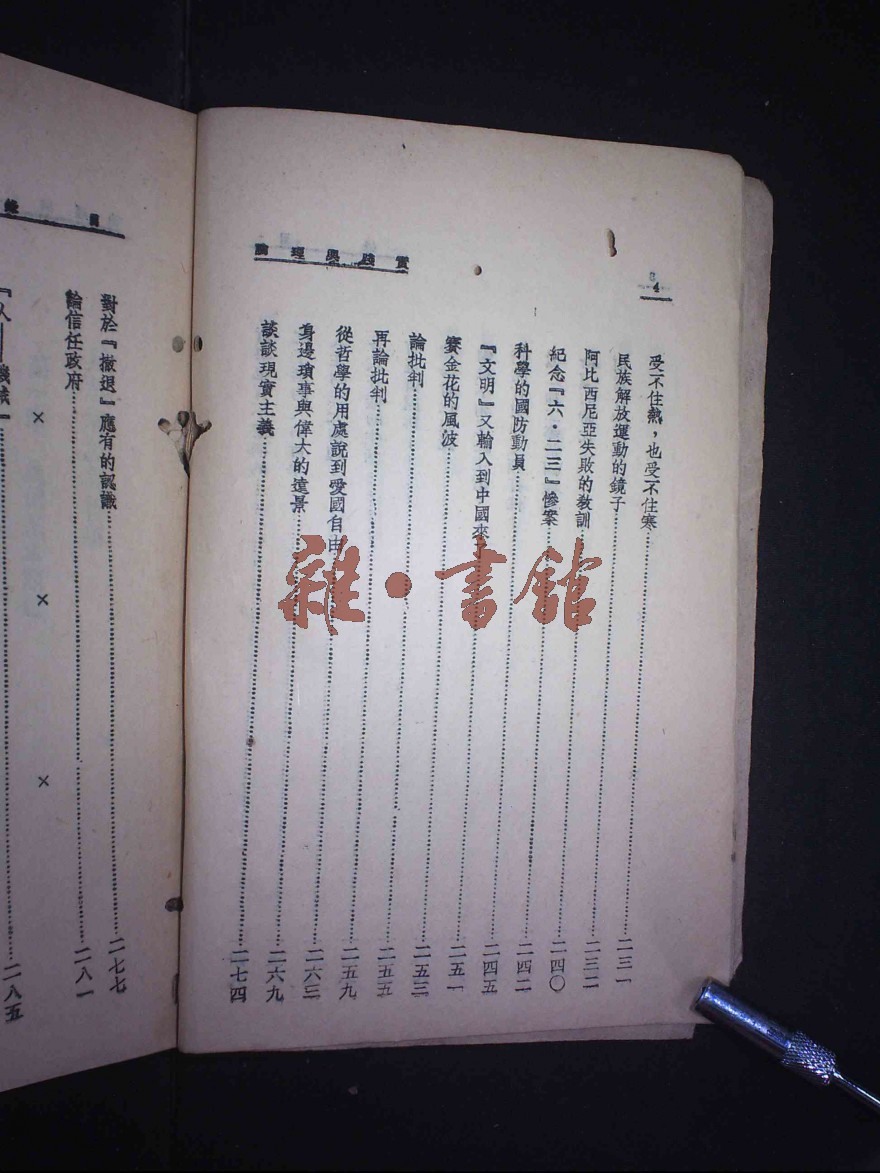 4
實踐與理論
受不住熱，也受不住寒……二三一
民族解放運動的鏡子……二三二
阿比西尼亞失敗的教訓……二四〇
紀念『六·二三』慘案……二四二
科學的國防動員……二四五
『文明』又輸入到中國來了……二五一
賽金花的風波……二五三
論批判……二五五
再論批判……二五九
從哲學的用處說到愛國自由……二六三
身邊瑣事與偉大的遠景……二六九
談談現實主義……二七四
目錄
對於『撤退』應有的認識……二七七
論信任政府……二八一
× × ×
二八五
雜·書館